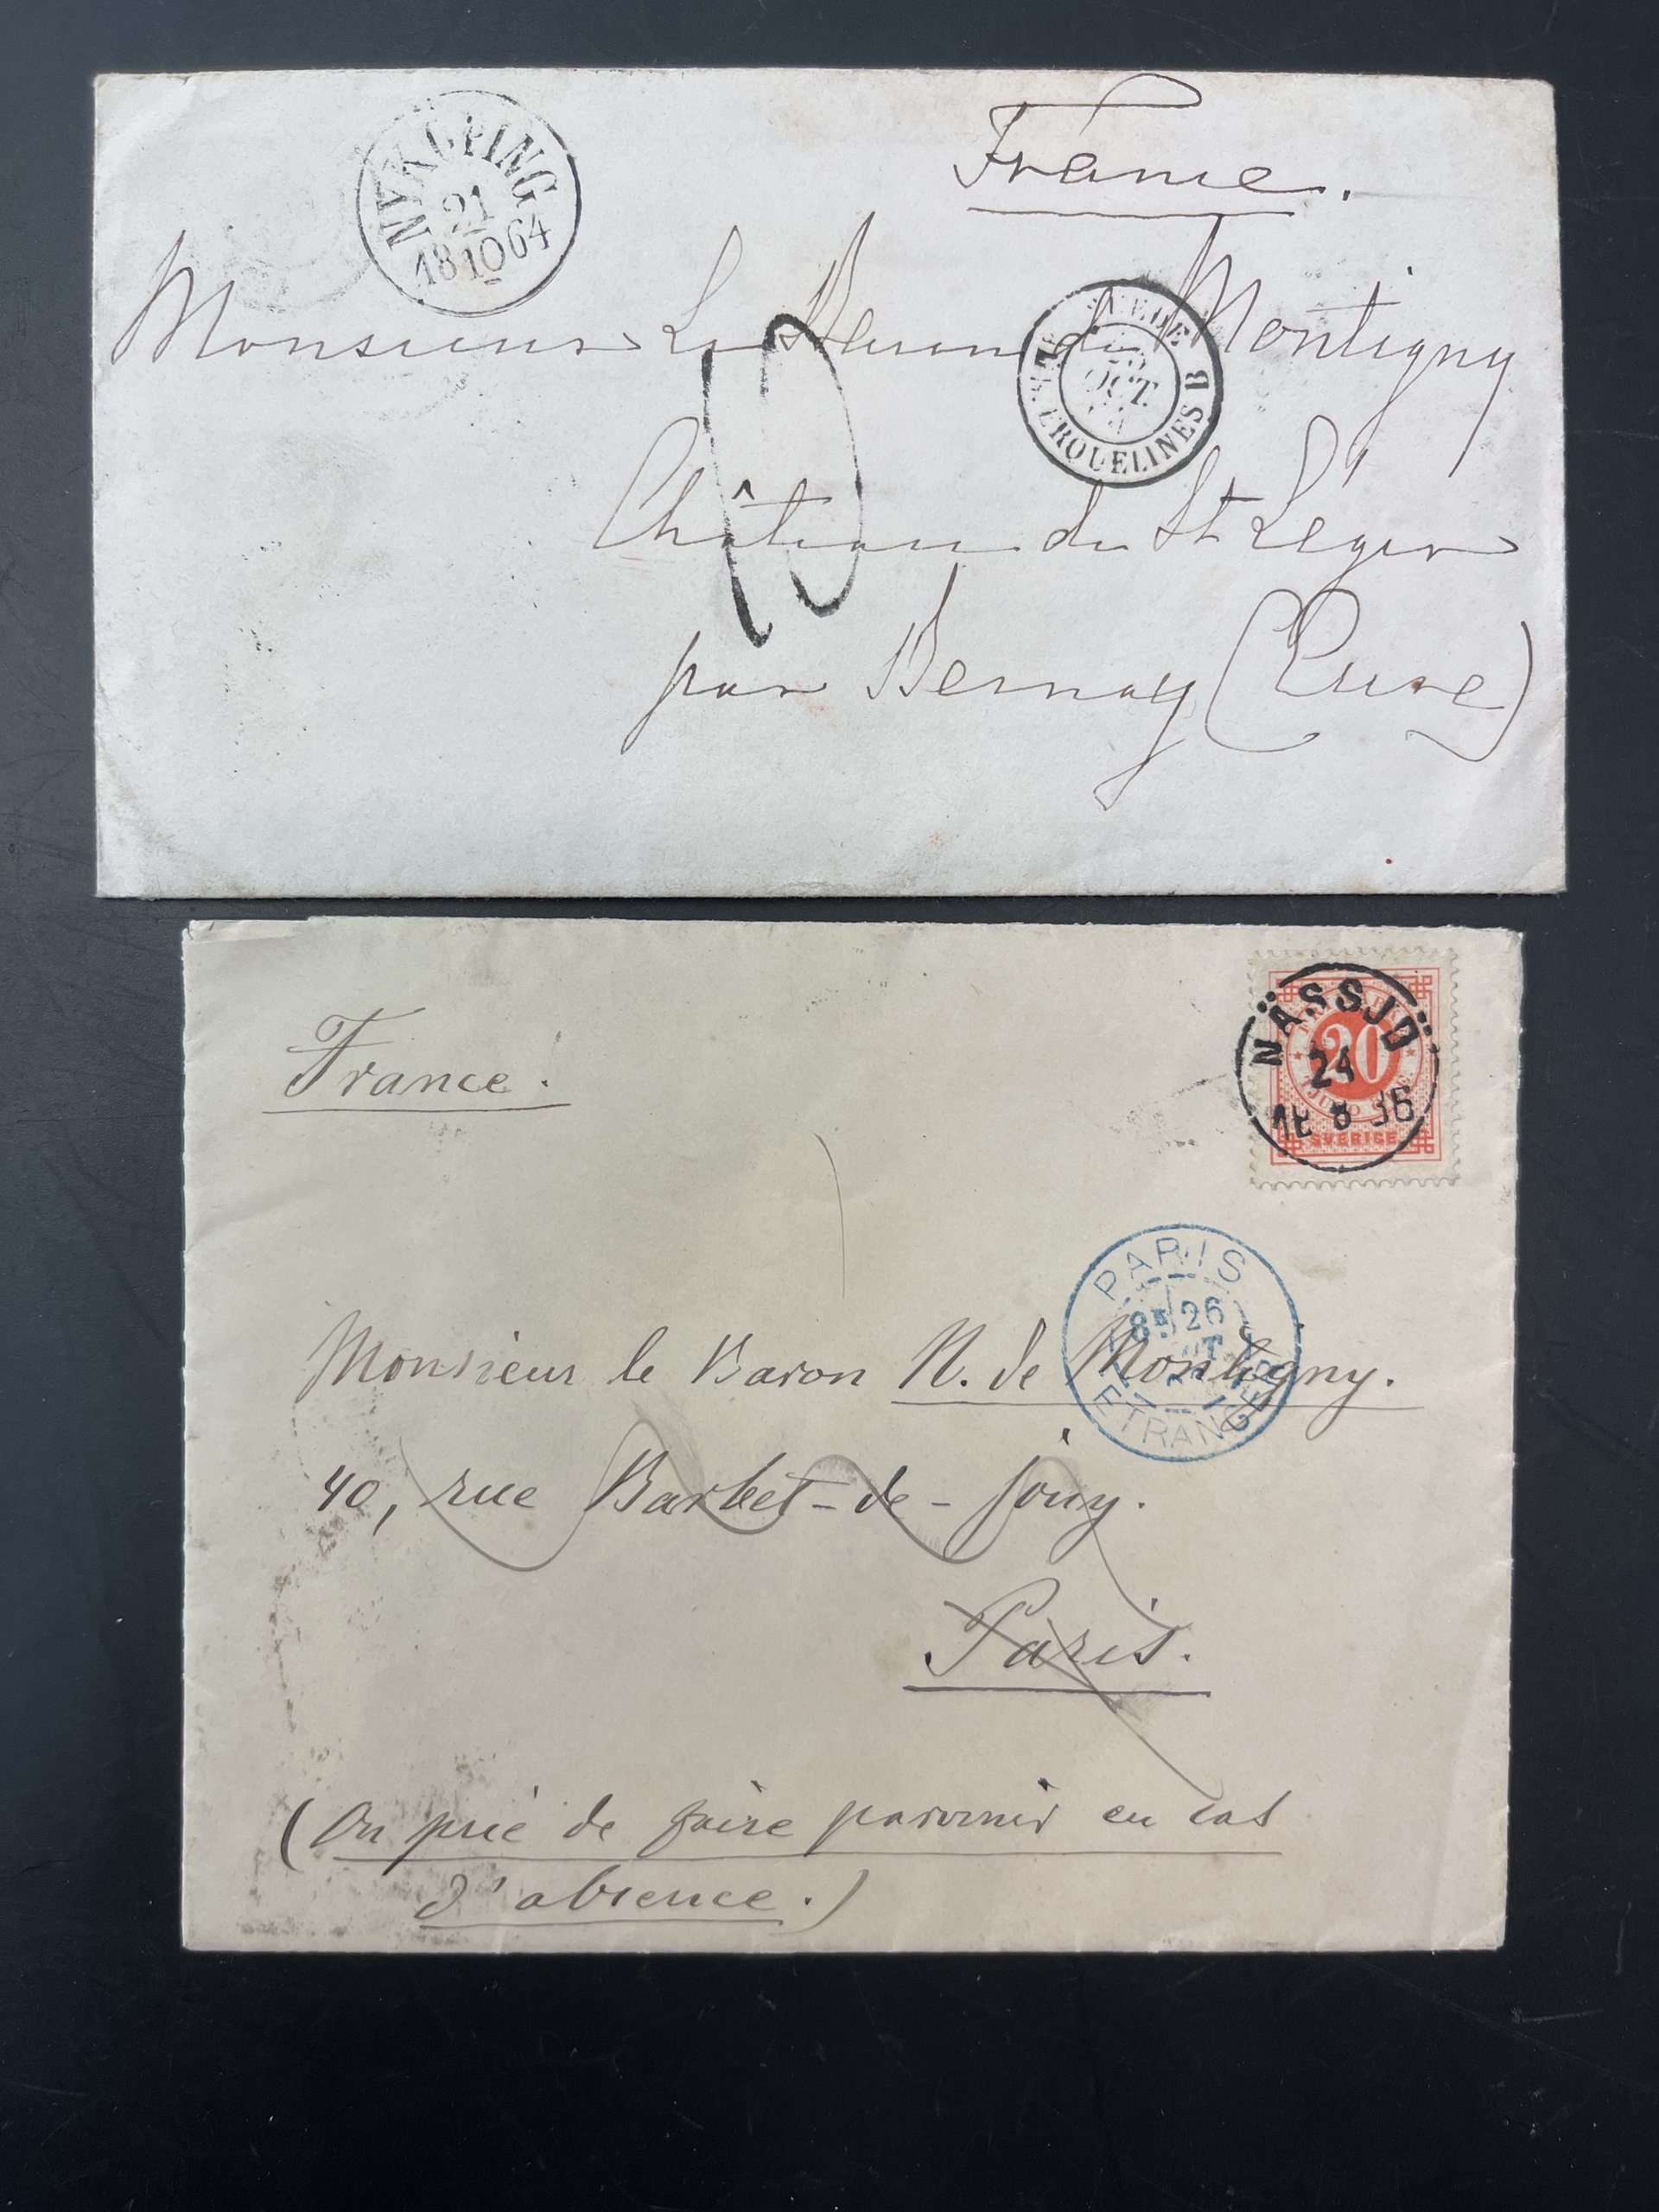 France.
NYKÖPING
21
18 10 64
Monsieur Le Baron de Montigny
SUEDE
OCT.
ERQUELINES B
Château de St Léger
par Bernay (Eure)
France.
NÄSSJÖ
20
24
8
SVERIGE
PARIS
26
ETRANGER
Monsieur le Baron N. de Montigny.
40, rue Barbet-de-Jouy.
Paris.
(On prie de faire parvenir en cas
d'absence.)